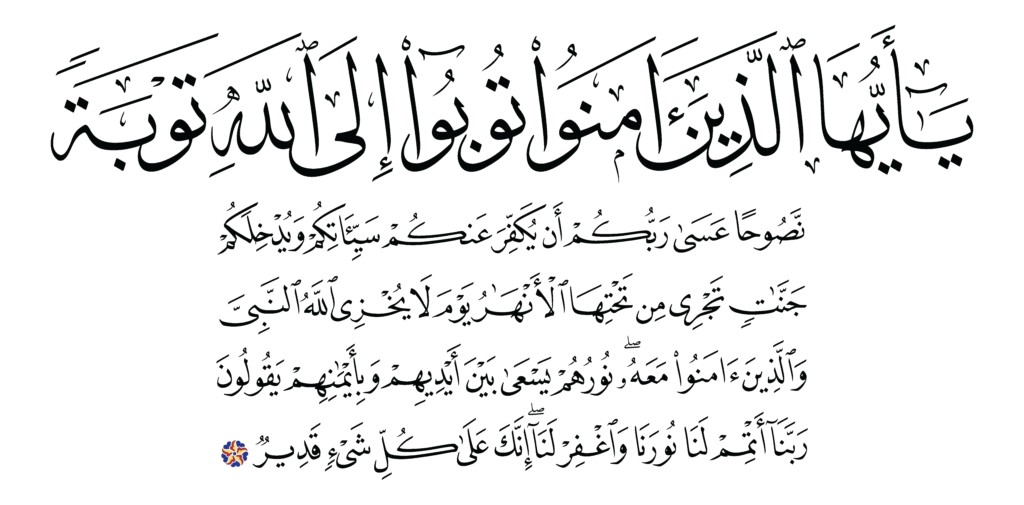 يَـٰٓأَيُّهَا ٱلَّذِينَ ءَامَنُوا۟ تُوبُوٓا۟ إِلَى ٱللَّهِ تَوْبَةً
نَّصُوحًا عَسَىٰ رَبُّكُمْ أَن يُكَفِّرَ عَنكُمْ سَيِّـَٔاتِكُمْ وَيُدْخِلَكُمْ
جَنَّـٰتٍ تَجْرِى مِن تَحْتِهَا ٱلْأَنْهَـٰرُ يَوْمَ لَا يُخْزِى ٱللَّهُ ٱلنَّبِىَّ
وَٱلَّذِينَ ءَامَنُوا۟ مَعَهُۥ ۖ نُورُهُمْ يَسْعَىٰ بَيْنَ أَيْدِيهِمْ وَبِأَيْمَـٰنِهِمْ يَقُولُونَ
رَبَّنَآ أَتْمِمْ لَنَا نُورَنَا وَٱغْفِرْ لَنَآ ۖ إِنَّكَ عَلَىٰ كُلِّ شَىْءٍ قَدِيرٌ